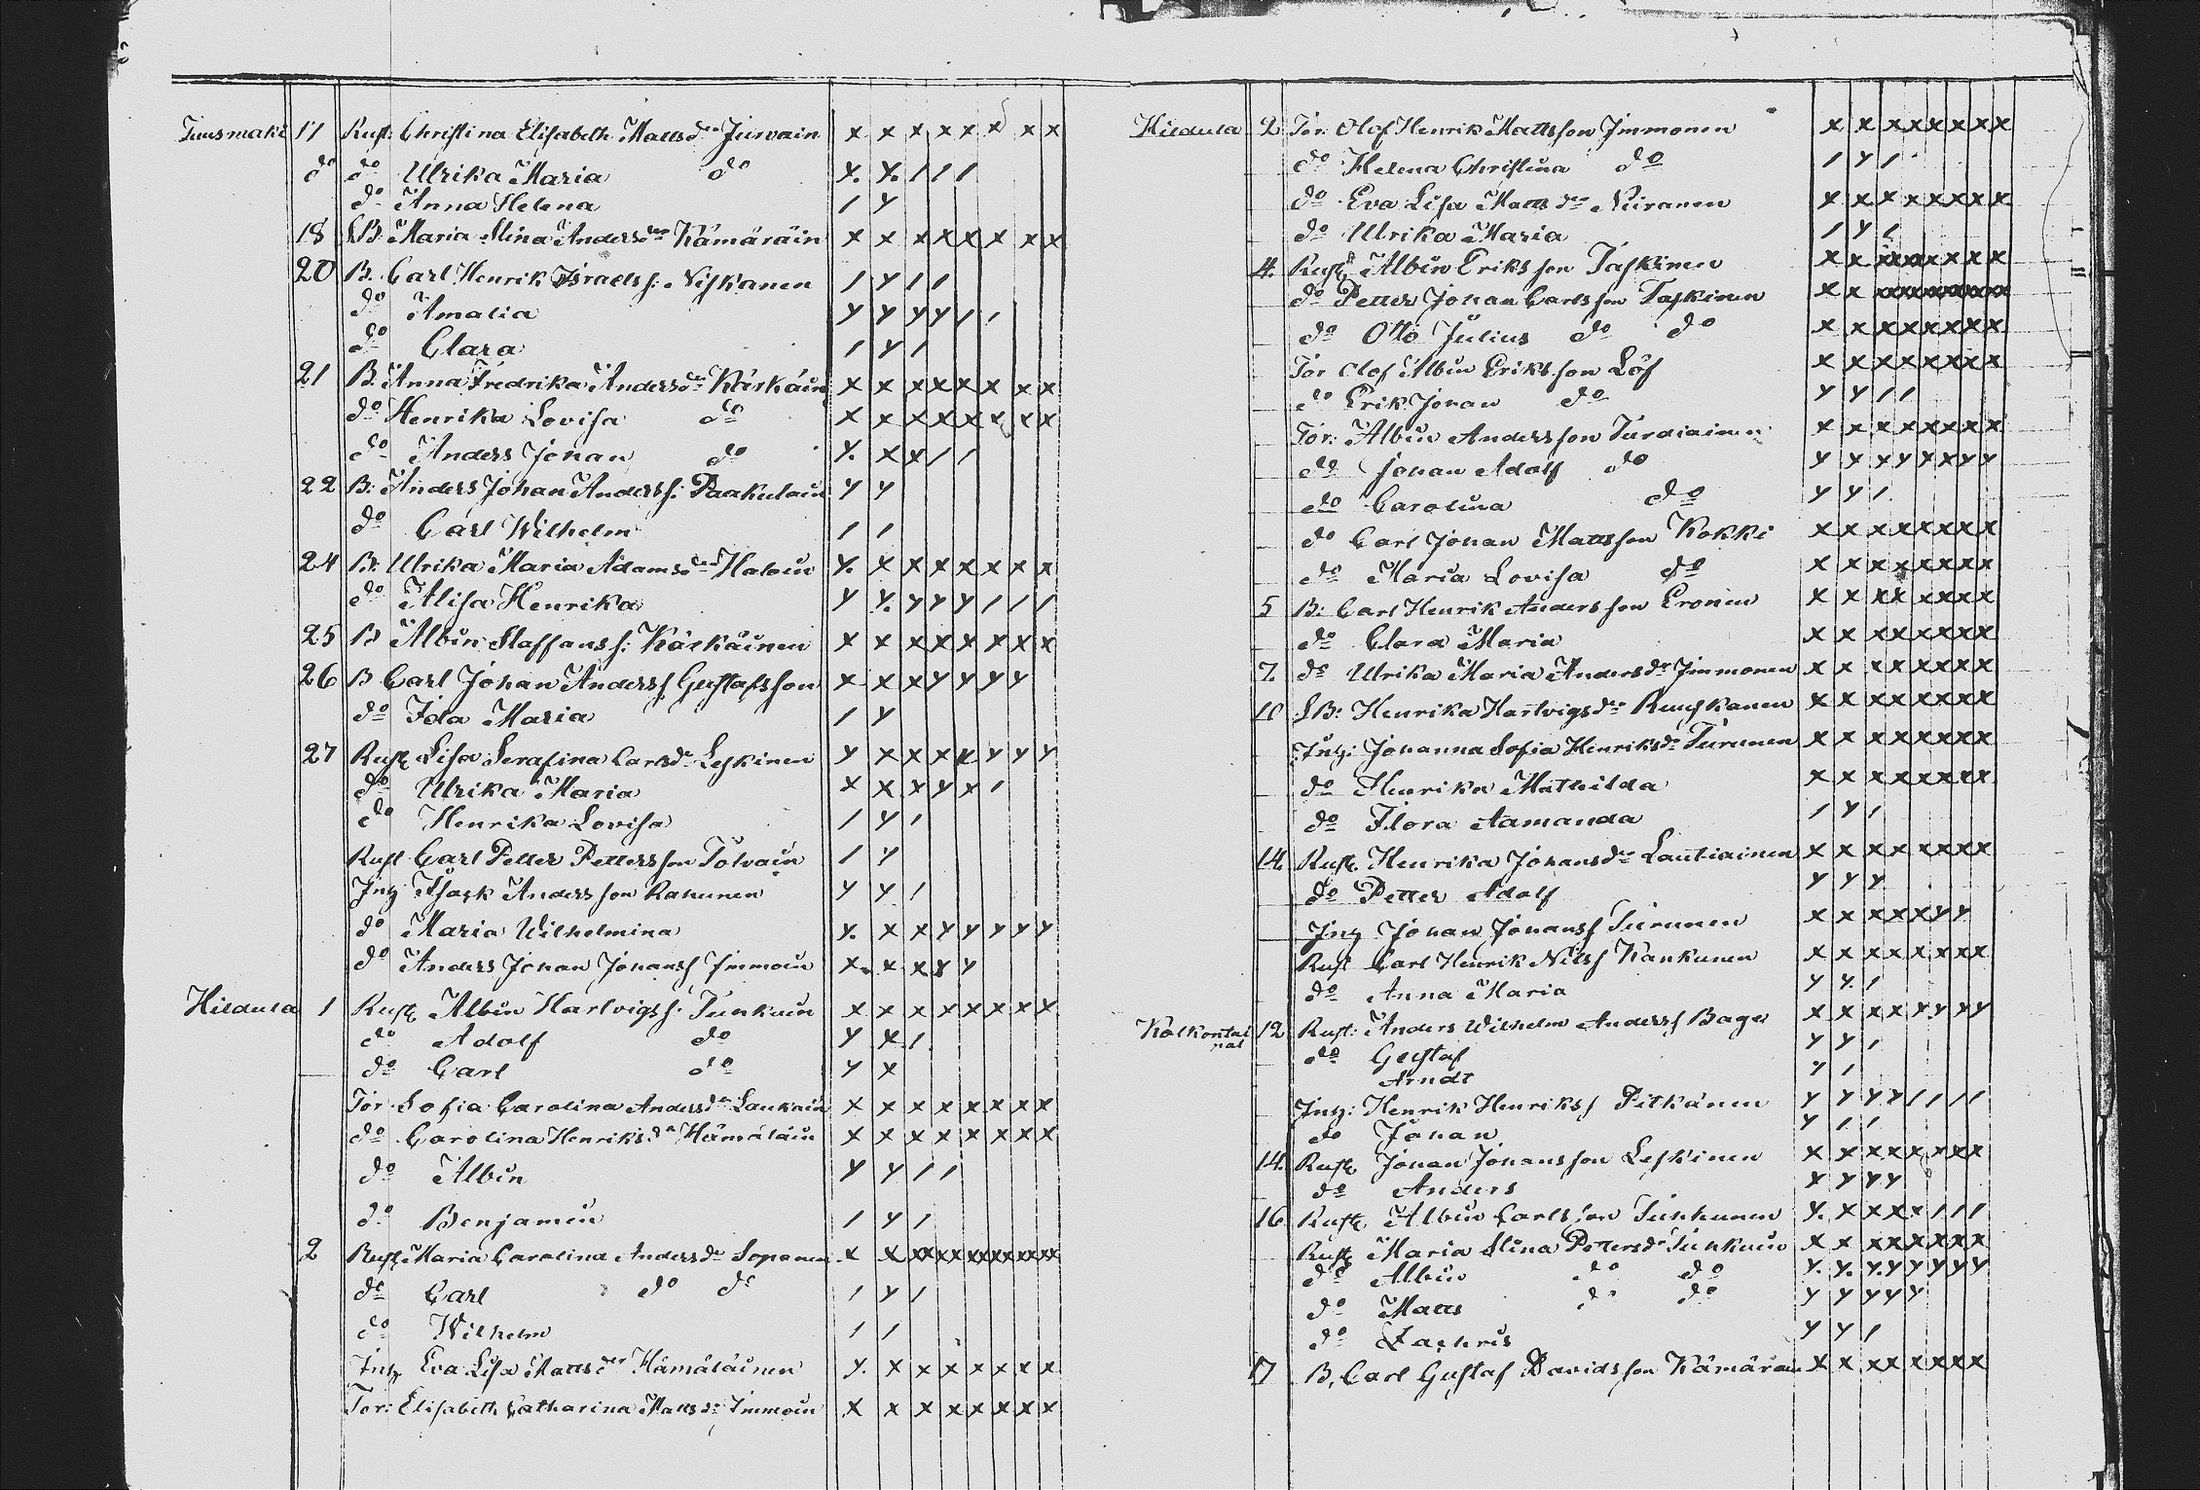 Tuusmaki 17 Rust: Christina Elisabeth Matts dr Jurvain x x x x x x x x
do do Ulrika Maria do y. y. 1 1 1
do Anna Helena 1 y
18 SB: Maria Stina Anders dr Kämäräin x x x x x x x x
20 B. Carl Henrik Israels s: Niskanen 1 y 1 1
do Amalia y y y y 1 1
do Clara 1 y 1
21 B: Anna Fredrika Anders dr Kärkäin x x x x x x x x
do Henrika Lovisa do x x x x x x x x
do Anders Johan do y. x x 1 1
22 B: Anders Johan Anders s: Paakulain y y
do Carl Wilhelm 1 1
24 B: Ulrika Maria Adams dr Haloin y. x x x x x x x
do Alisa Henrika y y. y y y 1 1 1
25 B Albin Staffans s: Kärkäinen x x x x x x x x
26 B Carl Johan Anders s Gustafsson x x x y y y y
do Ida Maria 1 y
27 Rust Lisa Serafina Carls dr Leskinen y x x x x y y y
do Ulrika Maria x x x y x 1
do Henrika Lovisa 1 y 1
Rust Carl Petter Pettersson Tolvain 1 y
Inh: Isack Andersson Rahunen y y 1
do Maria Wilhelmina y. x x y y y y y
do Anders Johan Johans s Immoin x x x y y
Hildula 1 Rust Albin Hartvigs s: Tunkuin x x x x x x x x
do Adolf do y x 1
do Carl do y x
Tor Sofia Carolina Anders dr Laukain x x x x x x x x
do Carolina Henriks dr Hämäläin x x x x x x x x
do Albin y y 1 1
do Benjamin 1 y 1
2 Rust Maria Carolina Anders dr Sopanen x x x x x x x x x x x x
do Carl do do 1 y 1
do Wilhelm 1 1
Inh Eva Lisa Matts dr Hämäläinen y. x x x x x x x
Tor: Elisabeth Catharina Matts dr Immoin x x x x x x x x
Hildula 2 Tor: Olof Henrik Mattsson Immonen x x x x x x x x
do Helena Christina do 1 y 1
do Eva Lisa Matts dr Niiranen x x x x x x x x
do Ulrika Maria 1 y 1
4. Rust Albin Eriksson Taskinen x x x x x x x x x
do Petter Johan Carlsson Taskinen x x x x x x x x x
do Otto Julius do do x x x x x x x x
Tor Olof Albin Eriksson Löf x x x x x x x x
do Erik Johan do y y 1 1
Tor: Albin Andersson Turdiainen x x x x x x x x
do Johan Adolf do y x x y y x y y
do Carolina do y y 1
do Carl Johan Mattsson Kokki x x x x x x x x
do Maria Lovisa do x x x x x x x x
5 B: Carl Henrik Andersson Eronen x x x x x x x x
do Clara Maria x x x x x x x x
7. do Ulrika Maria Anders dr Immonen x x x x x x x x
10 SB: Henrika Hartvigs dr Ruuskanen x x x x x x x x
Inh: Johanna Sofia Henriks dr Turunen x x x x x x x x
do Henrika Mathilda x x x x x x x x
do Flora Aamanda 1 y 1
14. Rust Henrika Johans dr Lautiainen x x x x x x x x
do Petter Adolf y y y
Inh Johan Johans s Turunen x x x x x y y
Rust Carl Henrik Nils s Kankunen x x x x x x x x
do Anna Maria y y. 1
Kolkontai pal 12 Rust: Anders Wilhelm Anders s Bager x x x x y y y y
do Gustaf y y 1
Arndt y 1
Inh: Henrik Henriks s Pitkänen y y y y 1 1 1 1
do Johan y 1 1
14. Rust Johan Johansson Leskinen x x x x x x x x
do Anders x y y y
16 Rust Albin Carlsson Tunkunen y. x x x x 1 1 1
Rust Maria Stina Petters dr Tunkuin x x x x x x x x
do Albin do do y. y. y. y y y y y
do Matts do do y y y y y
do Zachris y y 1
17 B, Carl Gustaf Davidsson Kämärä x x x x x x x x